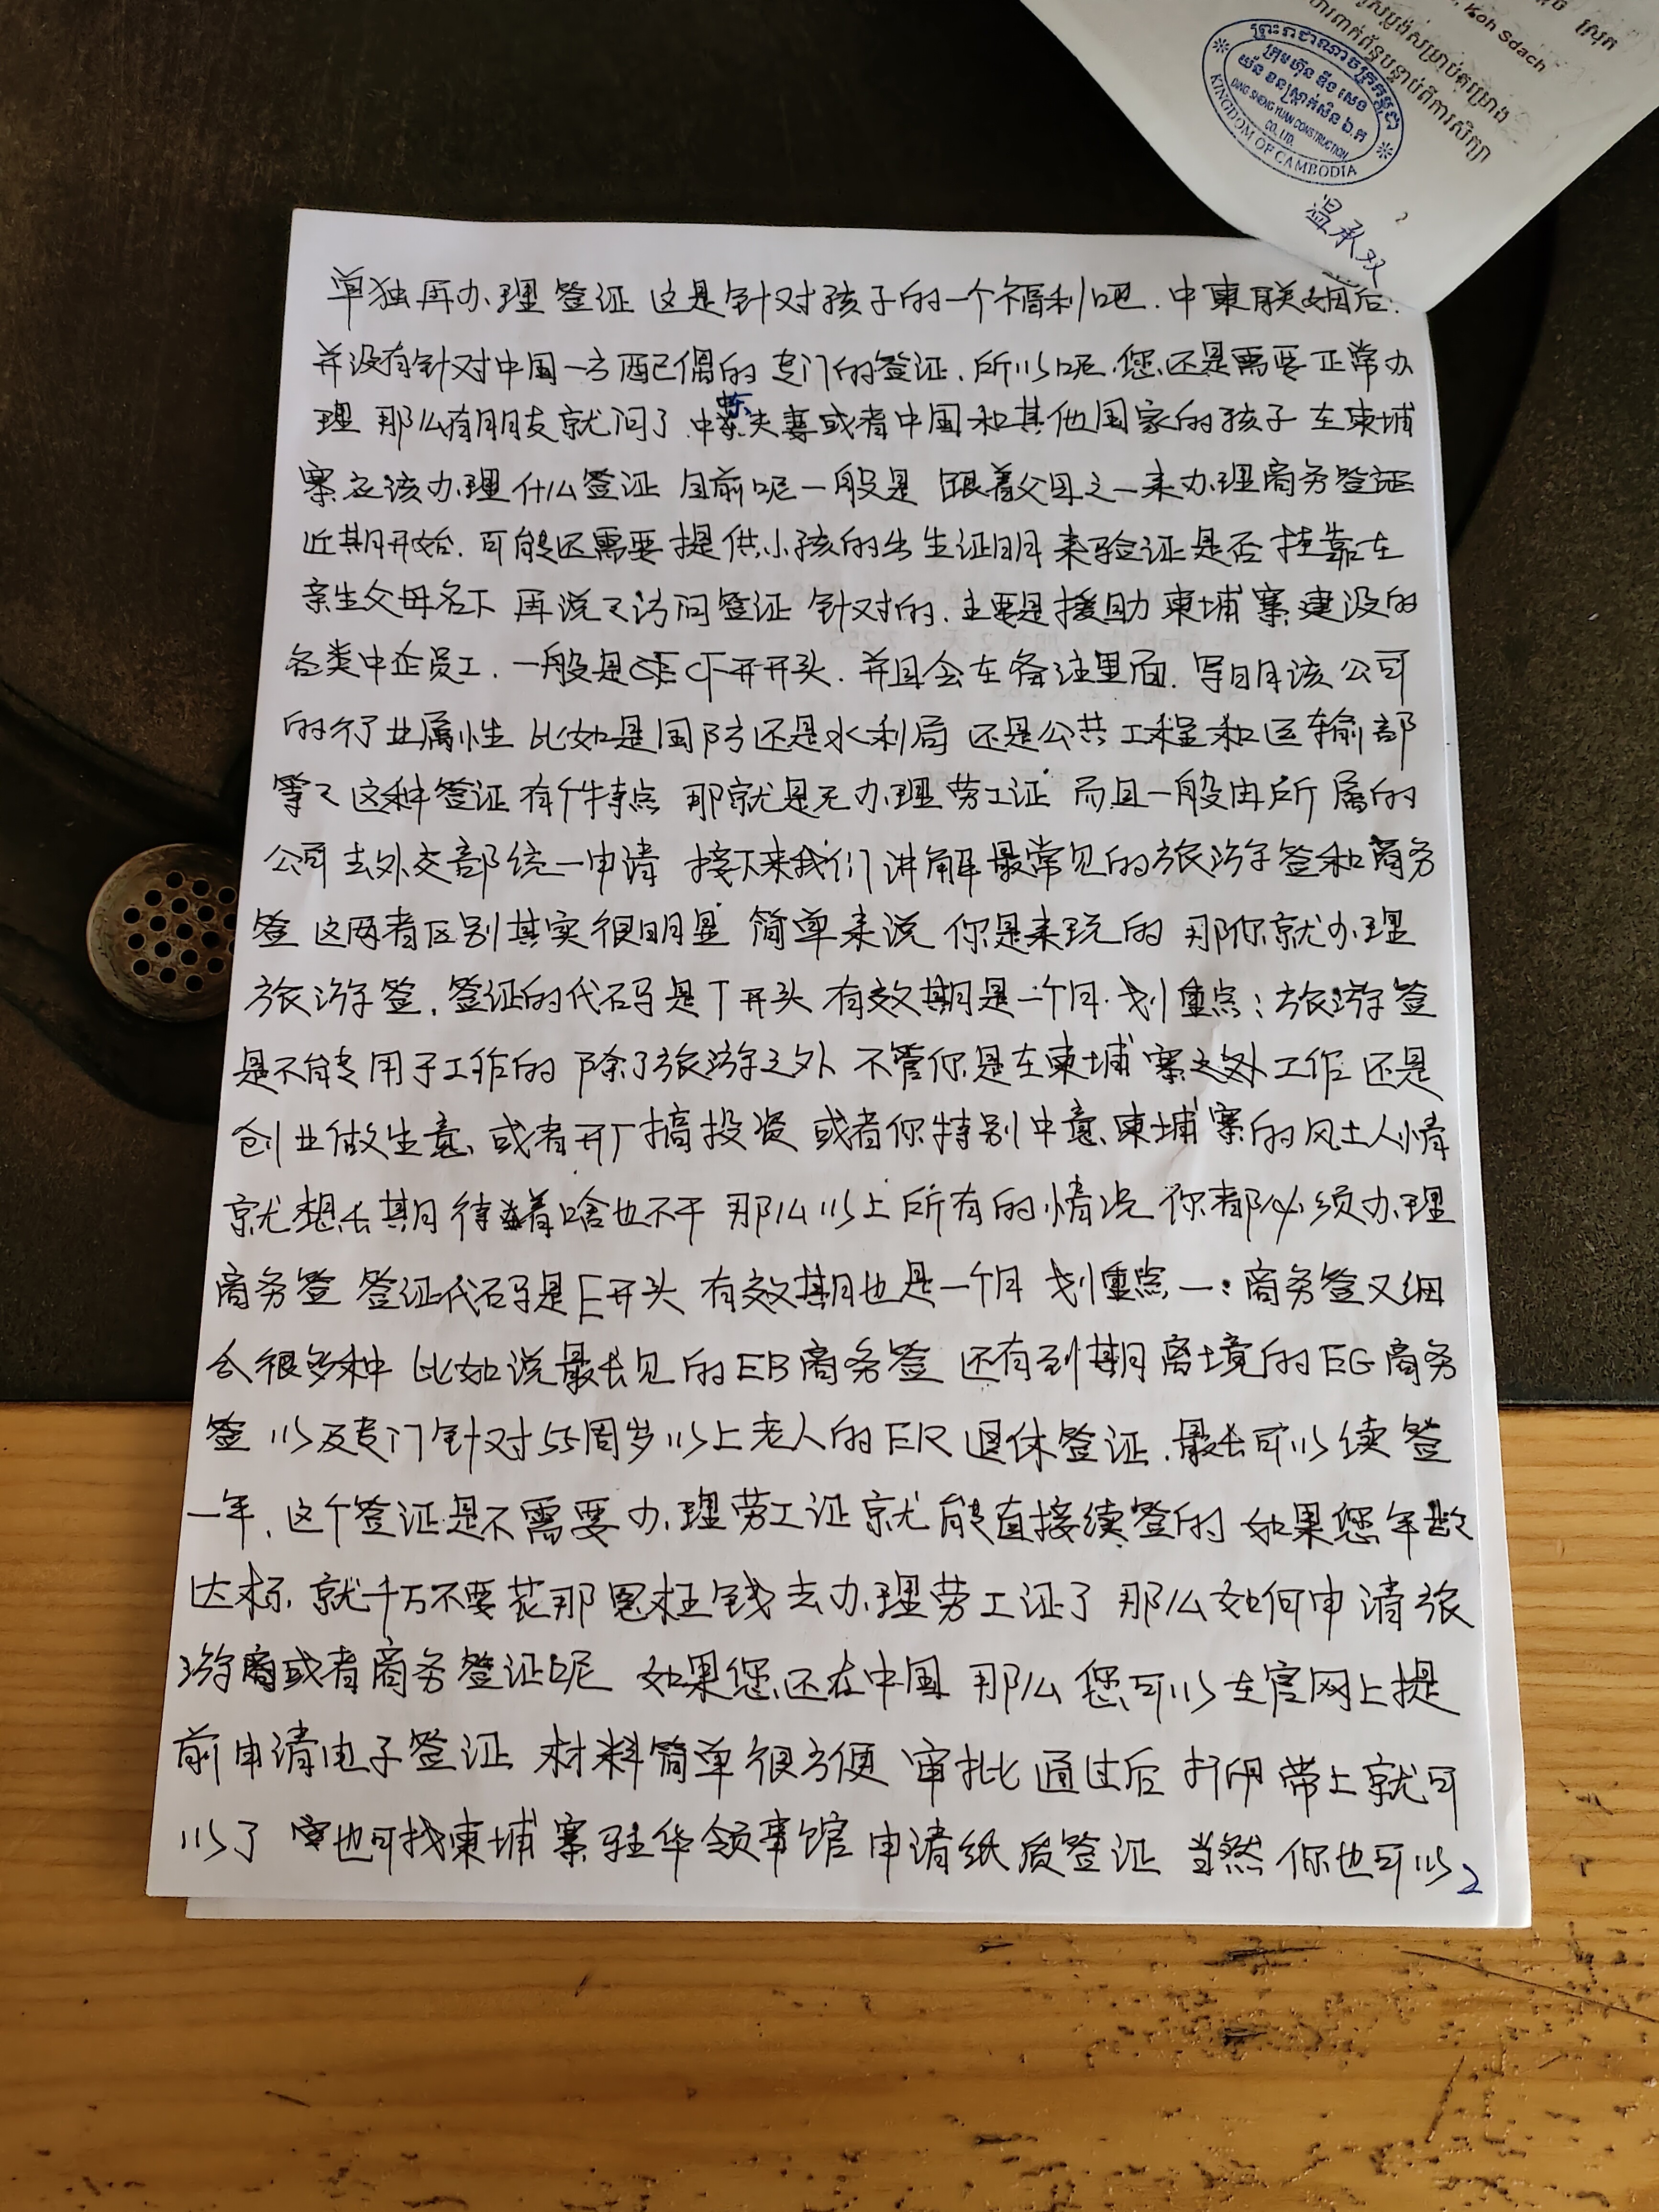 ស្រុក
, Koh Sdach
ព្រះរាជាណាចក្រកម្ពុជា
ក្រុមហ៊ុន ឌីង សេង
យ័ន ខនស្ត្រាក់សិន ឯ.ក
DING SHENG YUAN CONSTRUCTION
CO., LTD.
KINGDOM OF CAMBODIA
温承双
单独再办理签证 这是针对孩子的一个福利吧.中柬联姻后.
并没有针对中国一方配偶的专门的签证.所以呢.您还是需要正常办
理 那么有朋友就问了 中柬夫妻或者中国和其他国家的孩子 在柬埔
寨应该办理什么签证 目前呢一般是 跟着父母之一来办理商务签证
近期开始.可能还需要提供小孩的出生证明 来验证是否挂靠在
亲生父母名下 再说了访问签证 针对的.主要是援助柬埔寨建设的
各类中企员工.一般是CF开开头.并且会在备注里面.写明该公司
的行业属性 比如是国防还是水利局 还是公共工程和运输部
等々这种签证有个特点 那就是无办理劳工证 而且一般由所属的
公司去外交部统一申请 接下来我们讲解最常见的旅游签和商务
签 这两者区别其实很明显 简单来说 你是来玩的 那你就办理
旅游签.签证的代码是T开头 有效期是一个月.划重点:旅游签
是不能专用于工作的 除了旅游之外 不管你是在柬埔寨之外工作 还是
创业做生意、或者开厂搞投资 或者你特别中意柬埔寨的风土人情
就想长期待着啥也不干 那么以上所有的情况 你都必须办理
商务签 签证代码是E开头 有效期也是一个月 划重点一:商务签又细
分很多种 比如说最长见的EB商务签 还有到期离境的EG商务
签 以及专门针对55周岁以上老人的ER退休签证.最长可以续签
一年.这个签证是不需要办理劳工证就能直接续签的 如果您年龄
达标.就千万不要花那冤枉钱去办理劳工证了 那么如何申请旅
游商或者商务签证呢 如果您还在中国 那么您可以在官网上提
前申请电子签证 材料简单很方便 审批通过后 打印带上就可
以了 也可找柬埔寨驻华领事馆申请纸质签证 当然 你也可以
2